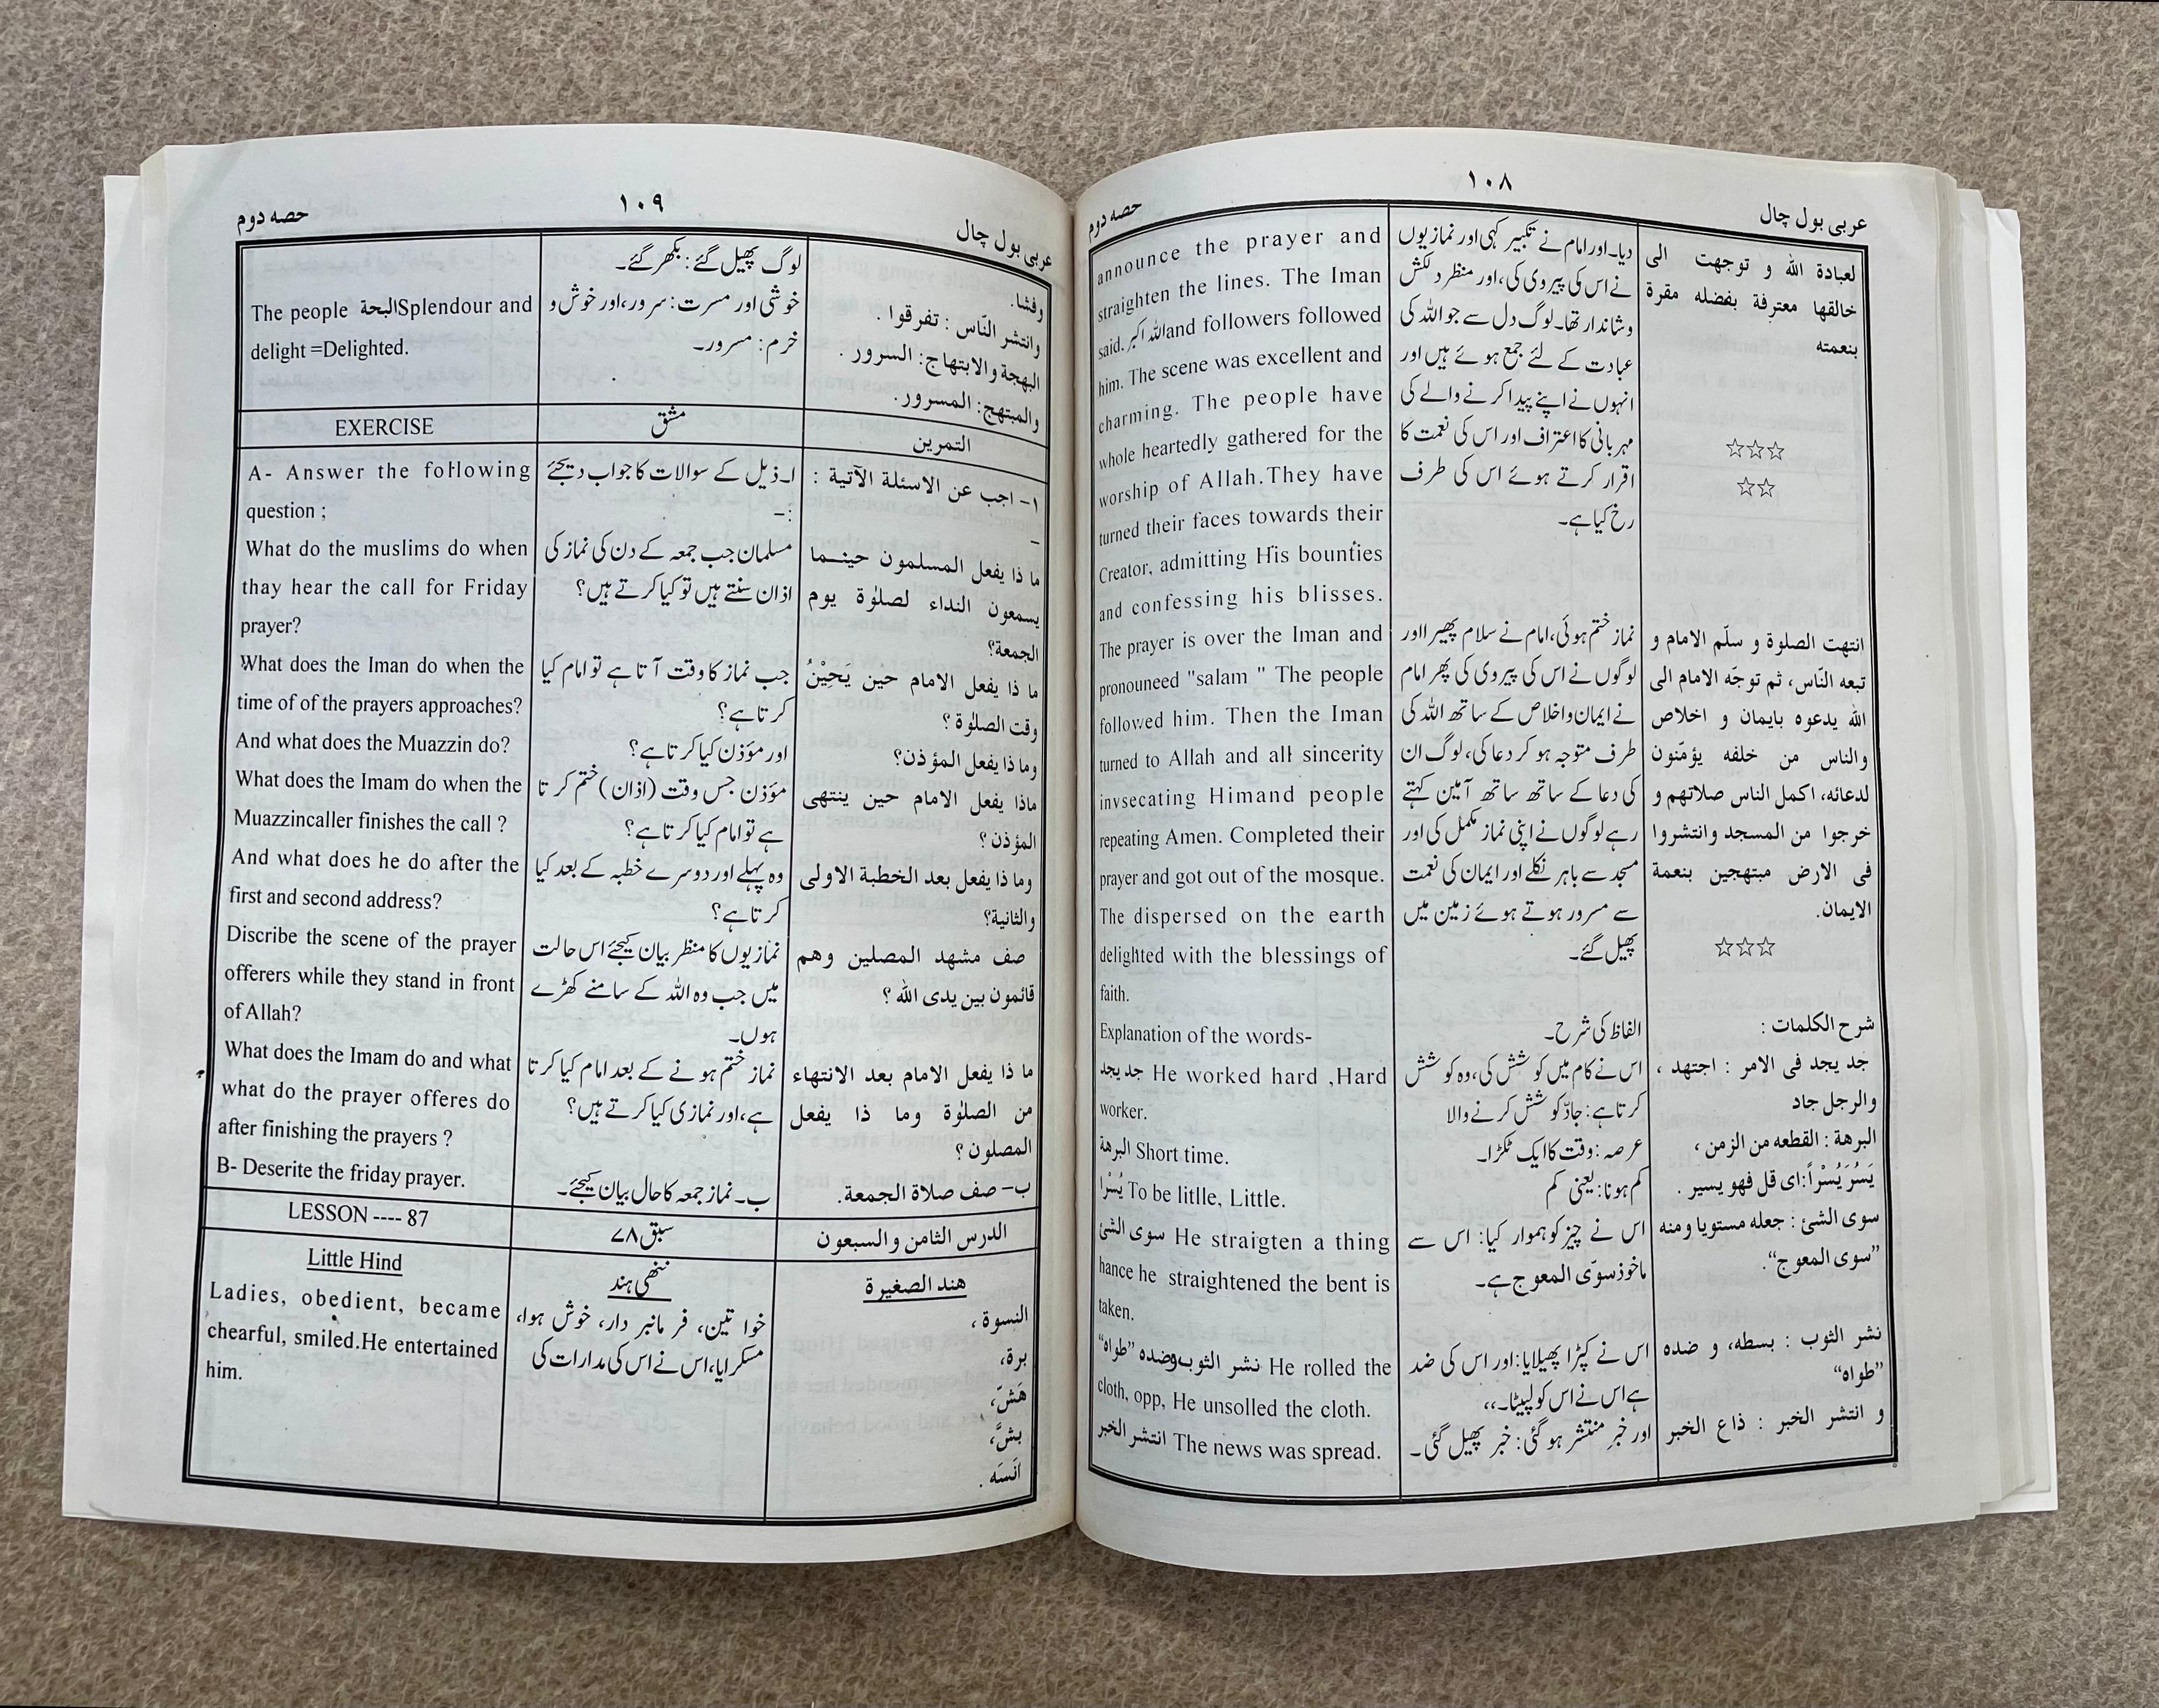 ١٠٨
عربی بول چال
حصہ دوم
لعبادة الله و توجهت الى
خالقها معترفة بفضله مقرة
بنعمته
☆☆☆
☆☆
انتهت الصلوة و سلّم الامام و
تبعه النّاس، ثم توجّه الامام الى
الله يدعوه بايمان و اخلاص
والناس من خلفه يؤمّنون
لدعائه، اكمل الناس صلاتهم و
خرجوا من المسجد وانتشروا
فى الارض مبتهجين بنعمة
الايمان.
☆☆☆
شرح الكلمات :
جد يجد فى الامر : اجتهد ،
والرجل جاد
البرهة : القطعه من الزمن ،
يَسُرَ يُسْراً: اى قل فهو يسير .
سوى الشئ : جعله مستويا ومنه
”سوى المعوج“.
نشر الثوب : بسطه، و ضده
”طواه“
و انتشر الخبر : ذاع الخبر
دیا۔اور امام نے تکبیر کہی اور نمازیوں
نے اس کی پیروی کی، اور منظر دلکش
و شاندار تھا۔ لوگ دل سے جو اللہ کی
عبادت کے لئے جمع ہوئے ہیں اور
انہوں نے اپنے پیدا کرنے والے کی
مہربانی کا اعتراف اور اس کی نعمت کا
اقرار کرتے ہوئے اس کی طرف
رخ کیا ہے۔
نماز ختم ہوئی، امام نے سلام پھیرا اور
لوگوں نے اس کی پیروی کی پھر امام
نے ایمان و اخلاص کے ساتھ اللہ کی
طرف متوجہ ہو کر دعا کی، لوگ ان
کی دعا کے ساتھ ساتھ آمین کہتے
رہے لوگوں نے اپنی نماز مکمل کی اور
مسجد سے باہر نکلے اور ایمان کی نعمت
سے مسرور ہوتے ہوئے زمین میں
پھیل گئے۔
الفاظ کی شرح۔
اس نے کام میں کوشش کی، وہ کوشش
کرتا ہے: جادّ کوشش کرنے والا
عرصہ: وقت کا ایک ٹکڑا۔
کم ہونا: یعنی کم
اس نے چیز کو ہموار کیا: اس سے
ماخوذ سوّی المعوج ہے۔
اس نے کپڑا پھیلایا: اور اس کی ضد
ہے اس نے اس کو لپیٹا۔،،
اور خبر منتشر ہو گئی: خبر پھیل گئی۔
announce the prayer and
straighten the lines. The Iman
said. الله اكبر and followers followed
him. The scene was excellent and
charming. The people have
whole heartedly gathered for the
worship of Allah.They have
turned their faces towards their
Creator, admitting His bounties
and confessing his blisses.
The prayer is over the Iman and
pronouneed "salam " The people
followed him. Then the Iman
turned to Allah and all sincerity
invsecating Himand people
repeating Amen. Completed their
prayer and got out of the mosque.
The dispersed on the earth
delighted with the blessings of
faith.
Explanation of the words-
جد يجد He worked hard ,Hard
worker.
البرهة Short time.
يُسْرا To be litlle, Little.
سوى الشئ He straigten a thing
hance he straightened the bent is
taken.
نشر الثوب وضده ”طواه“ He rolled the
cloth, opp, He unsolled the cloth.
انتشر الخبر The news was spread.
١٠٩
عربی بول چال
حصہ دوم
وفشا.
وانتشر النّاس : تفرقوا .
البهجة والابتهاج: السرور .
والمبتهج: المسرور.
لوگ پھیل گئے: بکھر گئے۔
خوشی اور مسرت: سرور، اور خوش و
خرم: مسرور۔
The people البحة Splendour and
delight =Delighted.
التمرين
مشق
EXERCISE
١- اجب عن الاسئلة الآتية :
–
ما ذا يفعل المسلمون حينما
يسمعون النداء لصلوٰة يوم
الجمعة؟
ما ذا يفعل الامام حين يَحِيْنُ
وقت الصلوٰة ؟
وما ذا يفعل المؤذن؟
ماذا يفعل الامام حين ينتهى
المؤذن ؟
وما ذا يفعل بعد الخطبة الاولى
والثانية؟
صف مشهد المصلين وهم
قائمون بين يدى الله ؟
ما ذا يفعل الامام بعد الانتهاء
من الصلوٰة وما ذا يفعل
المصلون ؟
ب- صف صلاة الجمعة.
ا۔ ذیل کے سوالات کا جواب دیجئے
:-
مسلمان جب جمعہ کے دن کی نماز کی
اذان سنتے ہیں تو کیا کرتے ہیں؟
جب نماز کا وقت آتا ہے تو امام کیا
کرتا ہے؟
اور مؤذن کیا کرتا ہے؟
مؤذن جس وقت (اذان) ختم کرتا
ہے تو امام کیا کرتا ہے؟
وہ پہلے اور دوسرے خطبہ کے بعد کیا
کرتا ہے؟
نمازیوں کا منظر بیان کیجئے اس حالت
میں جب وہ اللہ کے سامنے کھڑے
ہوں۔
نماز ختم ہونے کے بعد امام کیا کرتا
ہے، اور نمازی کیا کرتے ہیں؟
ب۔ نماز جمعہ کا حال بیان کیجئے۔
A- Answer the following
question ;
What do the muslims do when
thay hear the call for Friday
prayer?
What does the Iman do when the
time of of the prayers approaches?
And what does the Muazzin do?
What does the Imam do when the
Muazzincaller finishes the call ?
And what does he do after the
first and second address?
Discribe the scene of the prayer
offerers while they stand in front
of Allah?
What does the Imam do and what
what do the prayer offeres do
after finishing the prayers ?
B- Deserite the friday prayer.
الدرس الثامن والسبعون
سبق ۷۸
LESSON ---- 87
هند الصغيرة
النسوة ،
برة،
هَشّ،
بشَّ،
انَسَه .
ننھی ہند
خواتین، فرمانبردار، خوش ہوا،
مسکرایا، اس نے اس کی مدارات کی
Little Hind
Ladies, obedient, became
chearful, smiled.He entertained
him.